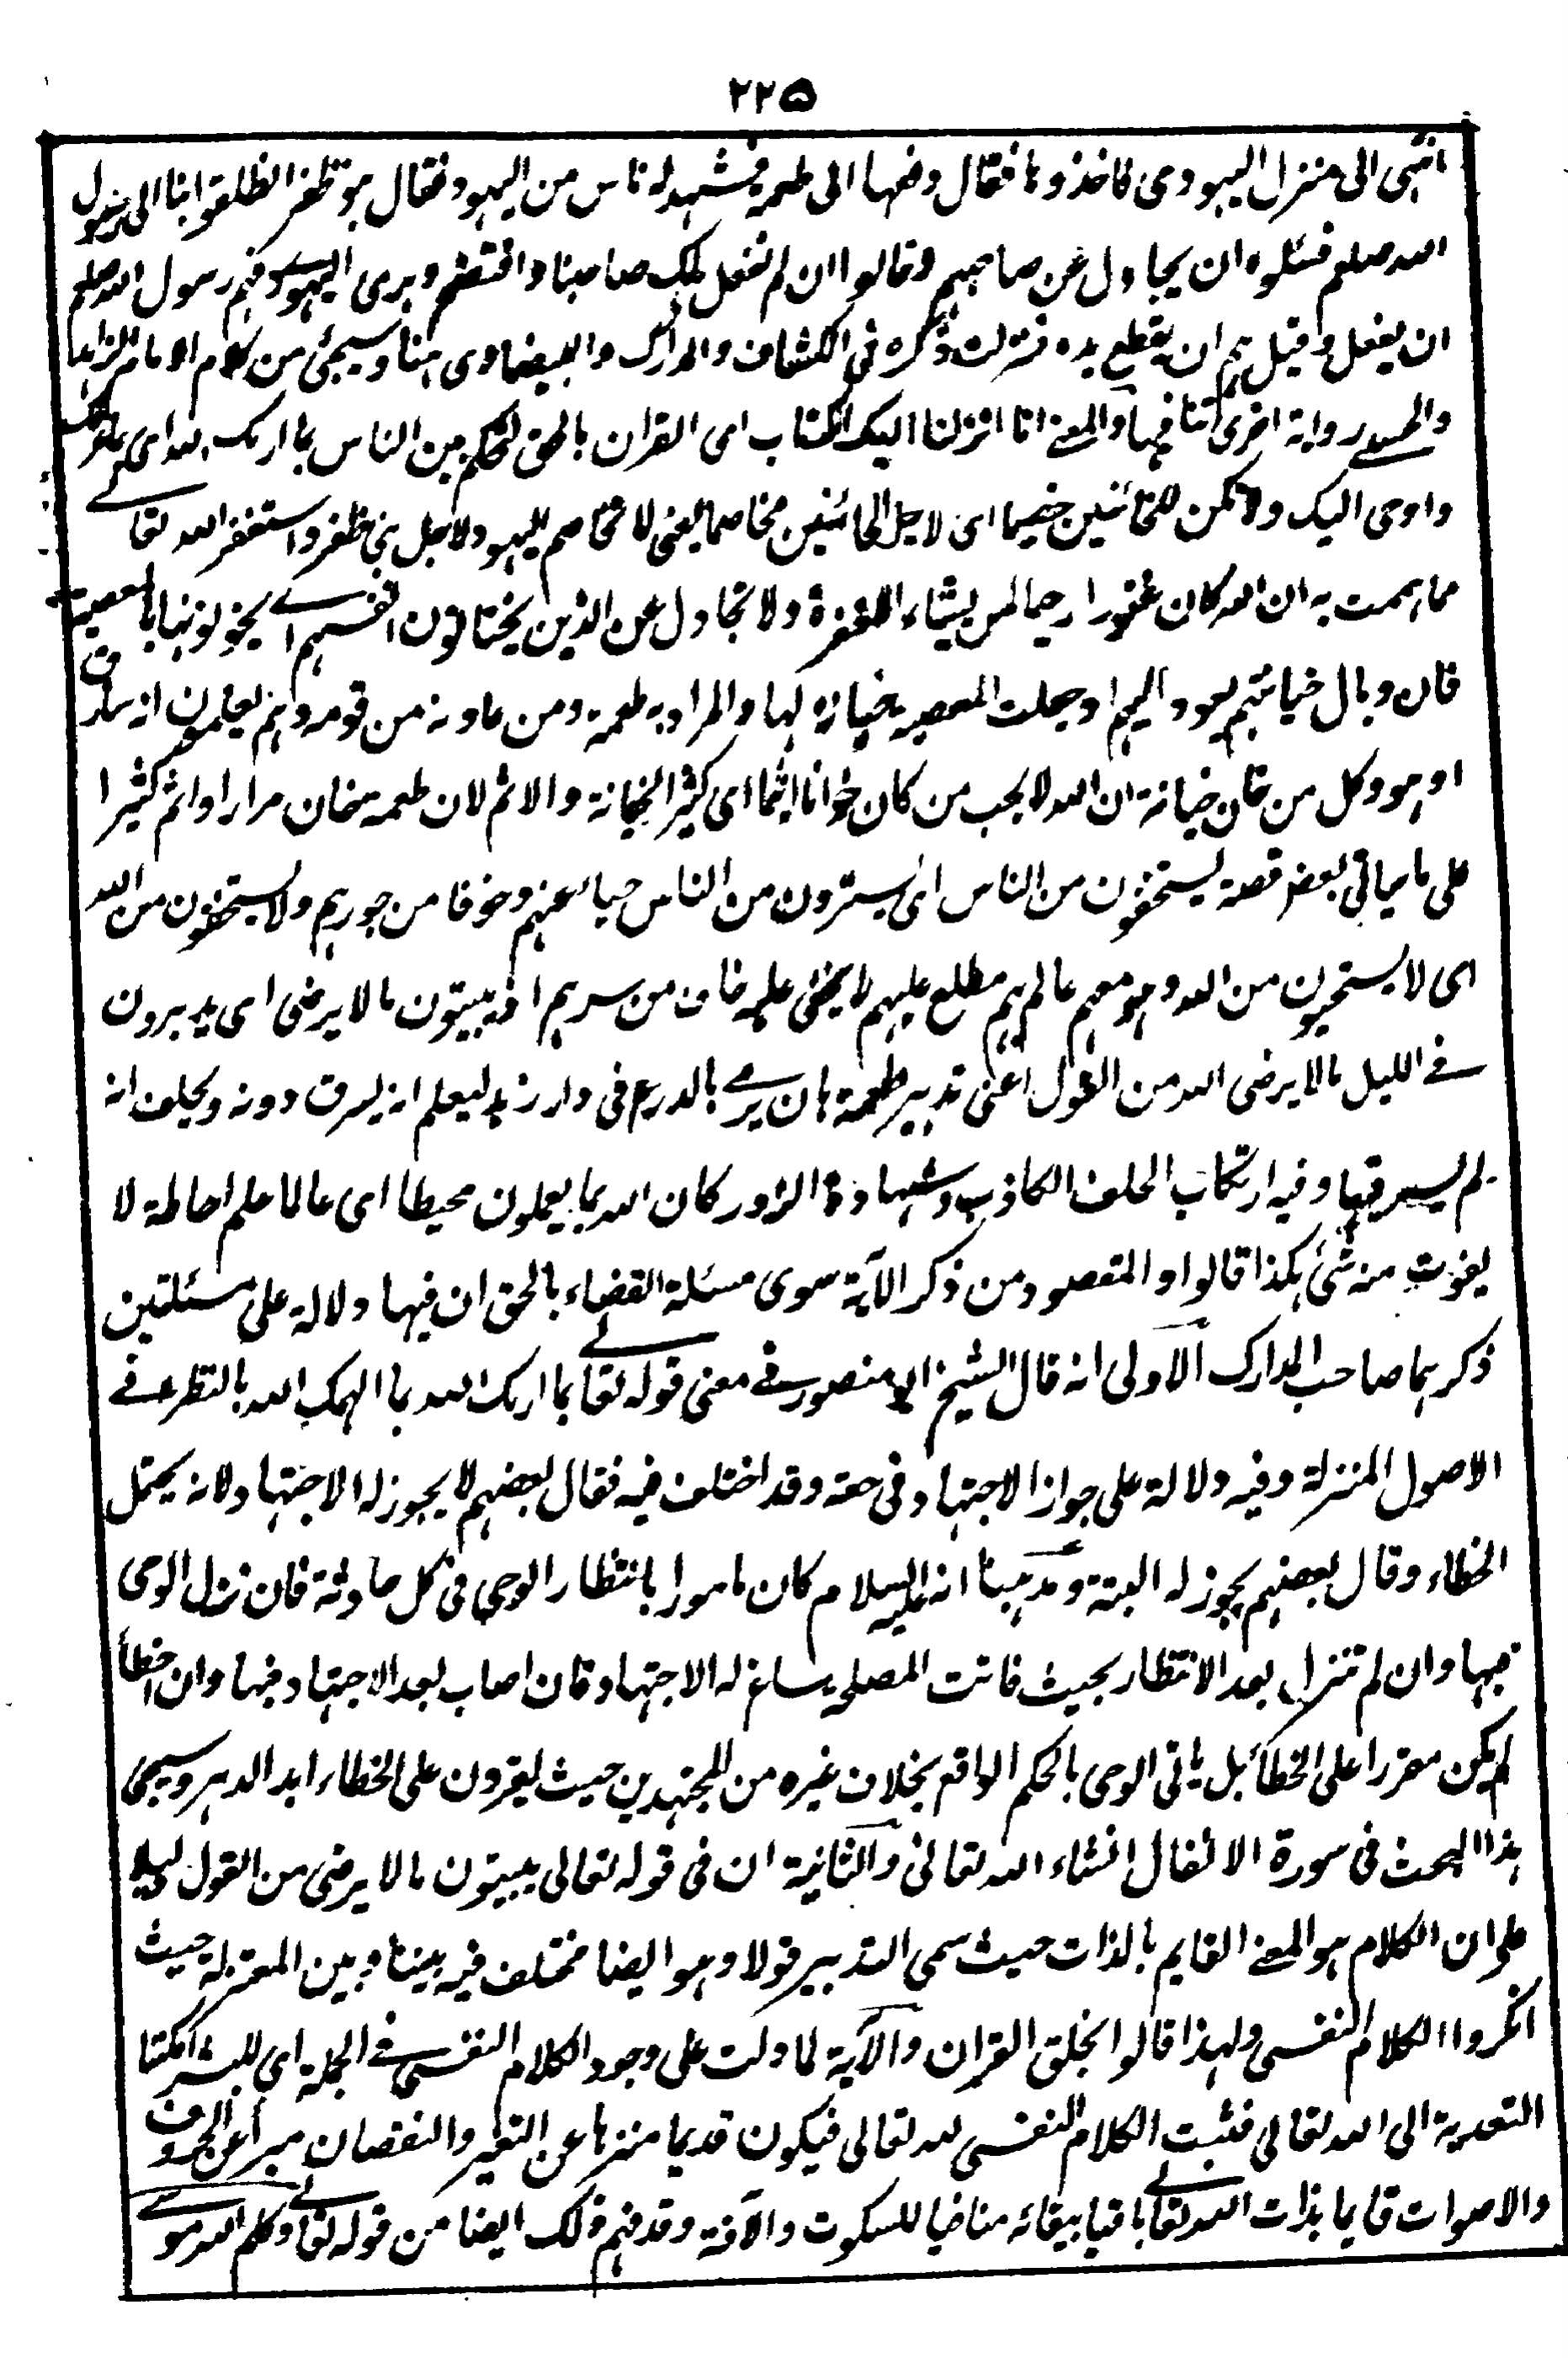 ٢٢٥
انتهى الى منزل اليهودى فاخذوها فقال دفعها الى طعمة فشهد له ناس من اليهود فقال بنو ظفر انطلقوا بنا الى رسول
الله صلعم فسئلوه ان يجادل عن صاحبهم وقالوا ان لم تفعل هلك صاحبنا وافتضح وبرى اليهودى فهم رسول الله صلعم
ان يفعل وقيل هم ان يقطع يده فنزلت ذكره فى الكشاف والمدارك والبيضاوى هنا وسيجئ من كلام الامام الزاهد
والحسينى رواية اخرى اتنا فيها والمعنى انا انزلنا اليك الكتاب اى القران بالحق لتحكم بين الناس بما اريك الله اى بما عرفك
واوحى اليك ولا تكن للخائنين خصيما اى لاجل الخائنين مخاصما يعنى لا تخاصم لليهود لاجل بنى ظفر واستغفر الله تعالى
مما هممت به ان الله كان غفورا رحيما لمن يشاء المغفرة ولا تجادل عن الذين يختانون انفسهم اى يخونونها بالمعصية
فان وبال خيانتهم يعود اليهم او جعلت المعصية خيانة لها والمراد به طعمة ومن عاونه من قومه وهم يعلمون انه سارق
او هو وكل من خان خيانة ان الله لا يحب من كان خوانا اثيما اى كثير الخيانة والاثم لان طعمة خان مرارا واثم كثيرا
على ما سياتى بعض قصة يستخفون من الناس اى يستترون من الناس حياء عنهم وخوفا من جورهم ولا يستخفون من الله
اى لا يستحيون من الله وهو معهم عالم بهم مطلع عليهم لا يخفى عليه خاف من سرهم اذ يبيتون ما لا يرضى اى يدبرون
فى الليل ما لا يرضى الله من القول اعنى تدبير طعمة بان يرمى بالدرع فى دار زيد ليعلم انه يسرق دونه ويحلف انه
لم يسرقها وفيه ارتكاب الحلف الكاذب وشهادة الزور وكان الله بما يعملون محيطا اى عالما علم احاطة لا
يفوت منه شئ هكذا قالوا والمقصود من ذكر الآية سوى مسئلة القضاء بالحق ان فيها دلالة على مسئلتين
ذكرهما صاحب المدارك الاولى انه قال الشيخ ابو منصور فى معنى قوله تعالى بما اريك الله بما الهمك الله بالنظر فى
الاصول المنزلة وفيه دلالة على جواز الاجتهاد فى حقه وقد اختلف فيه فقال بعضهم لا يجوز له الاجتهاد لانه يحتمل
الخطاء وقال بعضهم يجوز له البتة ومذهبنا انه عليه السلام كان مامورا بانتظار الوحى فى كل حادثة فان نزل الوحى
فبها وان لم تنزل بعد الانتظار بحيث فاتت المصلحة يساغ له الاجتهاد فان اصاب بعد الاجتهاد فبها وان اخطأ
لم يكن مقررا على الخطأ بل ياتى الوحى بالحكم الواقع بخلاف غيره من المجتهدين حيث يقرون على الخطاء ابد الدهر وسيجئ
هذا البحث فى سورة الانفال انشاء الله تعالى والثانية ان فى قوله تعالى يبيتون ما لا يرضى من القول دليلا
على ان الكلام هو المعنى القايم بالذات حيث سمى التدبير قولا وهو ايضا مختلف فيه بيننا وبين المعتزلة حيث
انكروا الكلام النفسى ولهذا قالوا بخلق القران والآية لما دلت على وجود الكلام النفسى فى الجملة اى للبشر امكننا
التعدية الى الله تعالى فثبت الكلام النفسى لله تعالى فيكون قديما منزها عن التغير والنقصان مبرأ عن الحروف
والاصوات قايما بذات الله تعالى باقيا ببقائه منافيا للسكوت والآفة وقد فهم ذلك ايضا من قوله تعالى وكلم الله موسى